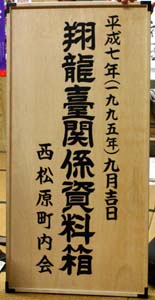 平成七年(一九九五年)九月吉日
翔龍臺関係資料箱
西松原町内会